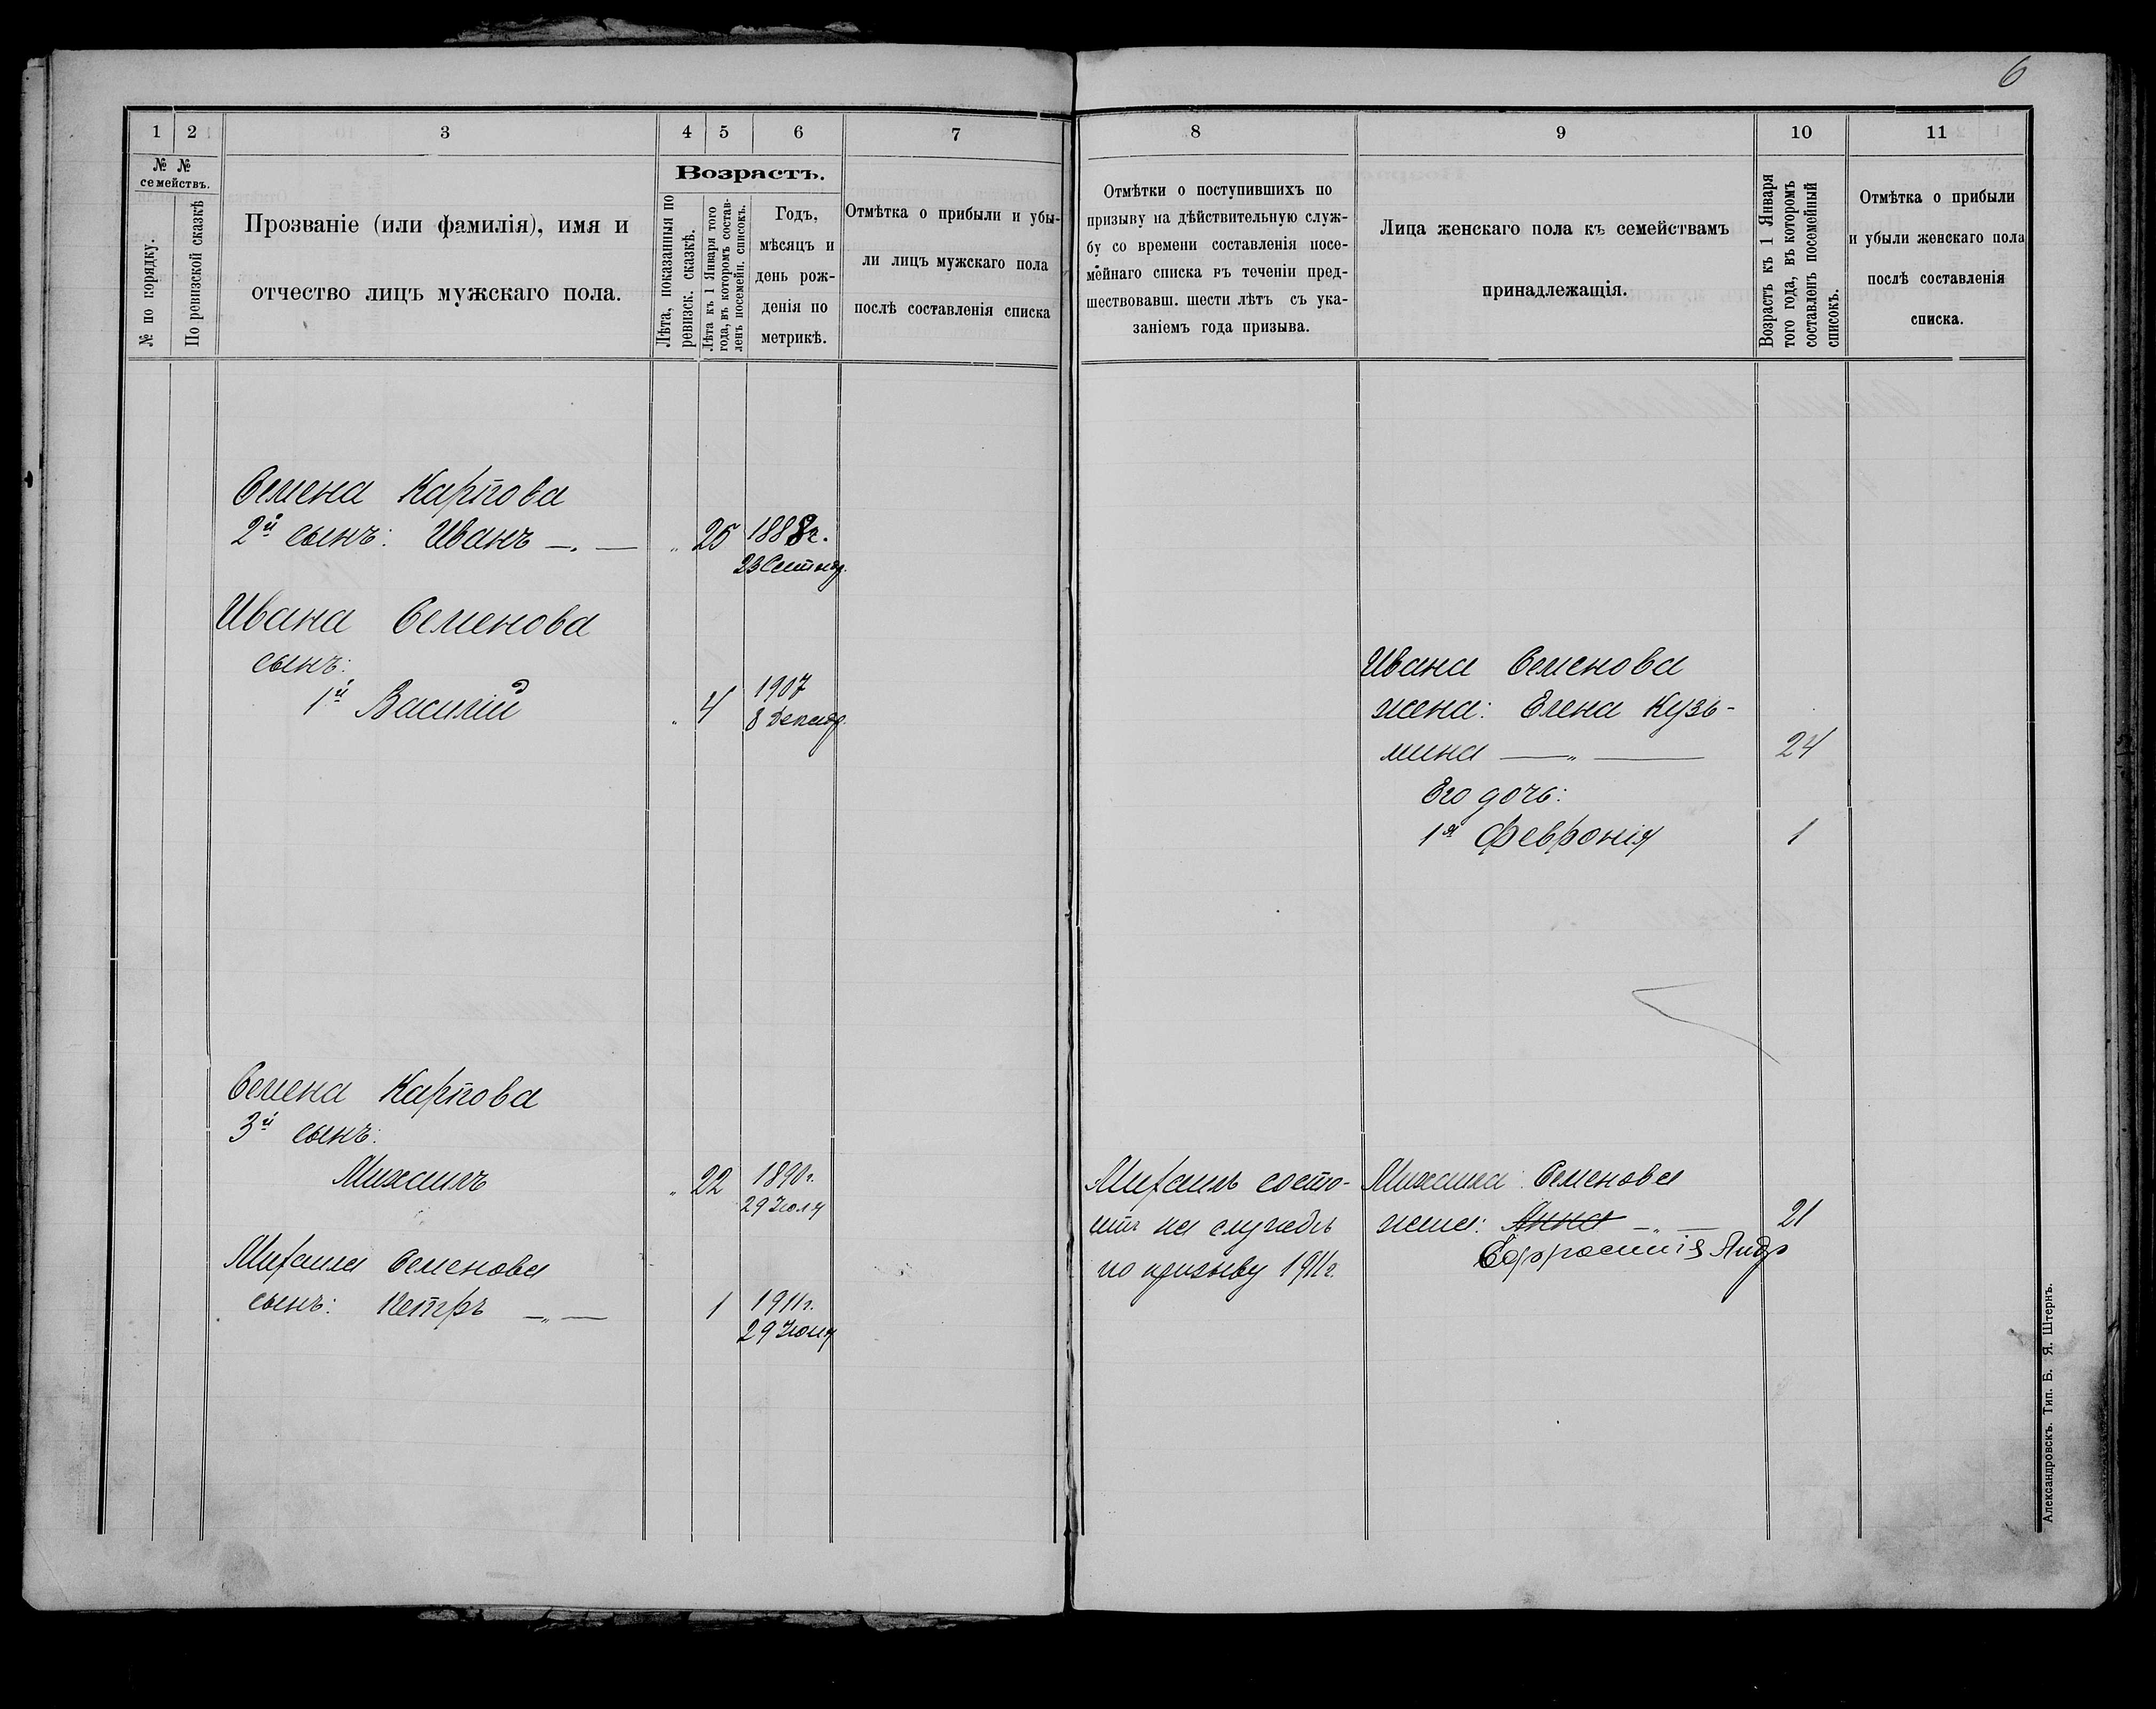 6
1 2 3 4 5 6 7
№ №
семействъ.
№ по порядку.
По ревизской сказкѣ
Прозваніе (или фамилія), имя и
отчество лицъ мужскаго пола.
Возрастъ.
Лѣта, показанныя по
ревизск. сказкѣ.
Лѣта къ 1 Января того
года, въ которомъ состав-
ленъ посемейн. списокъ.
Годъ,
мѣсяцъ и
день рож-
денія по
метрикѣ.
Отмѣтка о прибыли и убы-
ли лицъ мужскаго пола
послѣ составленія списка
Семена Карпова
2й сынъ: Иванъ — „ 25 1888г.
23 Сентяб.
Ивана Семенова
сынъ:
1й Василій „ 4 1907
8 Декабр.
Семена Карпова
3й сынъ:
Михаилъ „ 22 1890г.
29 Іюля
Михаила Семенова
сынъ: Петръ —„— 1 1911г.
29 Іюня
8 9 10 11
Отмѣтки о поступившихъ по
призыву на дѣйствительную служ-
бу со времени составленія посе-
мейнаго списка въ теченіи пред-
шествовавш. шести лѣтъ съ ука-
заніемъ года призыва.
Лица женскаго пола къ семействамъ
принадлежащія.
Возрастъ къ 1 Января
того года, въ которомъ
составленъ посемейный
списокъ.
Отмѣтка о прибыли
и убыли женскаго пола
послѣ составленія
списка.
Ивана Семенова
жена: Елена Кузь-
мина —„— 24
Его дочь:
1я Февронія 1
Михаилъ состо-
итъ на службѣ
по призыву 1911г.
Михаила Семенова
жена: Анна —„— 21
Ефросинія Андр
Александровскъ. Тип. Б. Я. Штернъ.